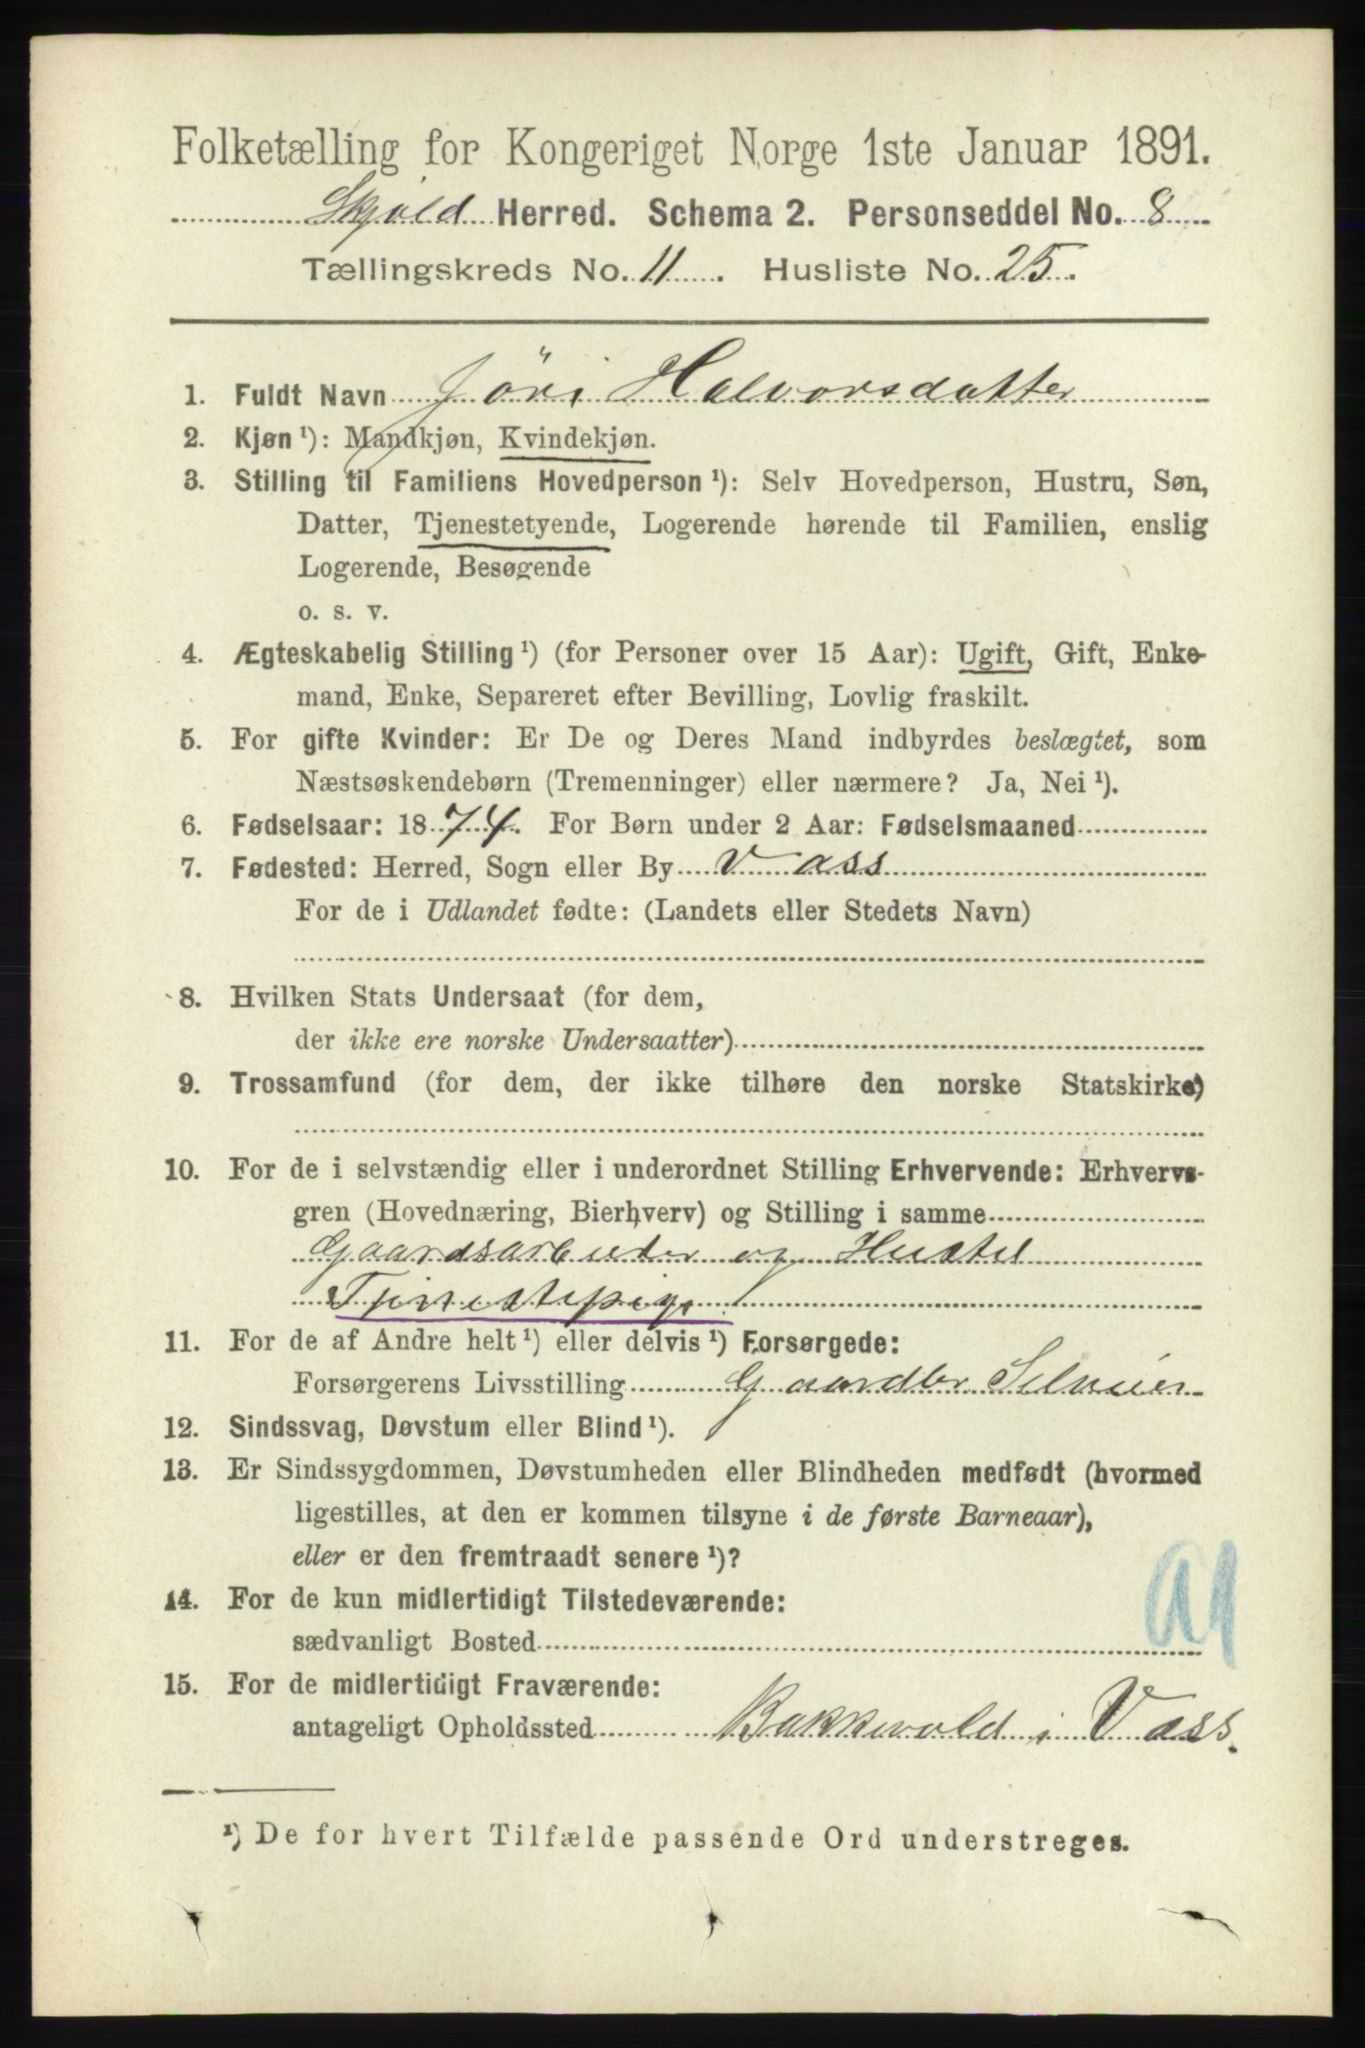 Folketælling for Kongeriget Norge 1ste Januar 1891.
Skjold Herred. Schema 2. Personseddel No. 8
Tællingskreds No. 11. Husliste No. 25.
1. Fuldt Navn Jöri Halvorsdatter
2. Kjøn ¹): Mandkjøn, Kvindekjøn.
3. Stilling til Familiens Hovedperson ¹): Selv Hovedperson, Hustru, Søn,
Datter, Tjenestetyende, Logerende hørende til Familien, enslig
Logerende, Besøgende
o. s. v.
4. Ægteskabelig Stilling ¹) (for Personer over 15 Aar): Ugift, Gift, Enke-
mand, Enke, Separeret efter Bevilling, Lovlig fraskilt.
5. For gifte Kvinder: Er De og Deres Mand indbyrdes beslægtet, som
Næstsøskendebørn (Tremenninger) eller nærmere? Ja, Nei ¹).
6. Fødselsaar: 1874. For Børn under 2 Aar: Fødselsmaaned
7. Fødested: Herred, Sogn eller By Vass
For de i Udlandet fødte: (Landets eller Stedets Navn)
8. Hvilken Stats Undersaat (for dem,
der ikke ere norske Undersaatter)
9. Trossamfund (for dem, der ikke tilhøre den norske Statskirke)
10. For de i selvstændig eller i underordnet Stilling Erhvervende: Erhvervs-
gren (Hovednæring, Bierhverv) og Stilling i samme
Gaardsarbeider og Husstel
Tjenestepige
11. For de af Andre helt ¹) eller delvis ¹) Forsørgede:
Forsørgerens Livsstilling Gaardbr Selveier
12. Sindssvag, Døvstum eller Blind ¹).
13. Er Sindssygdommen, Døvstumheden eller Blindheden medfødt (hvormed
ligestilles, at den er kommen tilsyne i de første Barneaar),
eller er den fremtraadt senere ¹)?
14. For de kun midlertidigt Tilstedeværende:
sædvanligt Bosted
15. For de midlertidigt Fraværende:
antageligt Opholdssted Bakkevold i Vass.
¹) De for hvert Tilfælde passende Ord understreges.